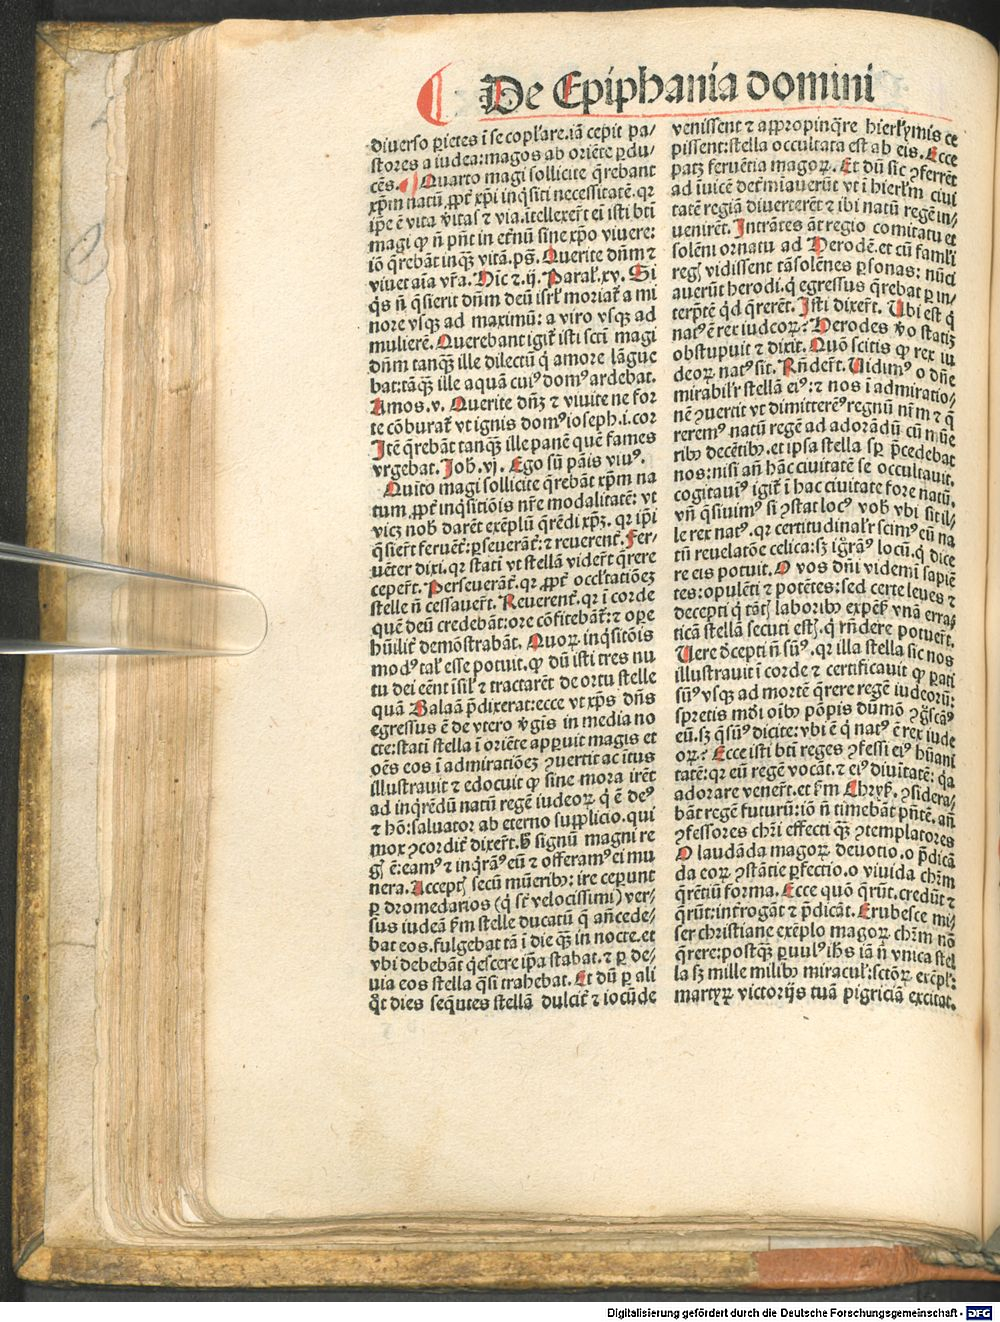 De Epiphania domini
diuerso ꝑietes ī se copl'are.iā cepit pa-
stores a iudea:magos ab oriēte ꝑdu-
cēs. Quarto magi sollicite q̄rebant
xp̄m natū ꝓpt̄ xp̄i inq̇siti necessitatē.qꝛ
ip̄e ē vita v̄itas ⁊ via.itellexer̄t eī isti bt̄i
magi ꝙ n̄ pn̄t in et̄nū sine xp̄o viuere:
iō q̄rebāt inqꝫ vitā.pš. Querite dn̄m ⁊
viuet aīa vr̄a. Hic ⁊.ij. Paral'.xv. Si
q̇s n̄ q̄sierit dn̄m deū isrl' moriat̄ a mi
nore vsqꝫ ad maximū: a viro vsqꝫ ad
mulierē. Querebant igit̄ isti sct̄i magi
dn̄m tanqꝫ ille dilectū q̇ amore lāgue
bat:tāqꝫ ille aquā cuiꝰ domꝰ ardebat.
Amos.v. Querite dn̄ꝫ ⁊ viuite ne for
te cōburat̄ vt ignis domꝰ ioseph.i.cor
Itē q̄rebāt tanqꝫ ille panē quē fames
vrgebat. Joh̄.vj. Ego sū pāis viuꝰ.
Quīto magi sollicite q̄rebāt xp̄m na
tum ꝓpt̄ inq̇sitiōis nr̄e modalitatē: vt
vicꝫ nob̄ darēt exēplū q̄rēdi xp̄ꝫ. qꝛ ip̄i
q̄sier̄t feruēt̄:ꝑseuerāt̄:⁊ reuerent̄. Fer-
uēter dixi.qꝛ stati vt stellā vider̄t q̄rere
ceper̄t. Perseuerāt̄.qꝛ ꝓpt̄ occl'tatiōeꝫ
stelle n̄ cessauer̄t. Reuerent̄.qꝛ ī corde
quē deū credebāt:ore cōfitebāt̄:⁊ oꝑe
hūilit̄ demōstrabāt. Quoꝝ inq̇sitōis
modꝰ tal' esse potuit.ꝙ dū isti tres nu
tu dei eēnt ī sil' ⁊ tractarēt de ortu stelle
quā Balaā p̄dixerat:ecce vt xp̄s dn̄s
egressus ē de vtero v̄gis in media no
cte:stati stella ī oriēte apꝑuit magis et
oēs eos ī admiratiōeꝫ ꝯuertit ac itus
illustrauit ⁊ edocuit ꝙ sine mora irēt
ad inq̇rēdū natū regē iudeoꝝ q̇ ē deꝰ
⁊ hō:saluator ab eterno supplicio.qui
mox ꝯcordit̄ dixer̄t. h̄ signū magni re
gꝭ ē:eamꝰ ⁊ inq̇ramꝰ eū ⁊ offeramꝰ ei mu
nera. Acceptꝭ secū mūeribꝰ: ire ceperunt
ꝑ dromedarios (q̇ st̄ velocissimi) ver-
sus iudeā f̄m stelle ducatū q̄ an̄cede-
bat eos.fulgebat tā ī die qꝫ in nocte.et
vbi debebāt q̇escere ip̄a stabat.⁊ ꝑ de-
uia eos stella q̄si trahebat. Et dū ꝑ ali
q̇t dies seq̄ntes stellā dulcit̄ ⁊ iocūde
venissent ⁊ appropinq̄re hierl'ymis ce
pissent:stella occultata est ab eis. Ecce
patꝫ feruētia magoꝝ. Et dū sic ꝯferrēt
ad īuicē det̄mīauerūt vt ī hierl'm ciui
tatē regiā diuerterēt ⁊ ibi natū regē in-
uenirēt. Intrātes āt regio comitatu et
solēni ornatu ad Herodē.et cū famłi
regꝭ vidissent tā solēnes ꝑsonas: nūci
auerūt herodi.q̇ egressus q̄rebat ꝑ in-
terp̄tē q̇d q̄rerēt. Isti dixer̄t. Ubi est q̇
natꝰ ē rex iudeoꝝ? Herodes v̄o statiꝫ
obstupuit ⁊ dixit. Quō scitis ꝙ rex iu
deoꝝ natꝰ sit. Rn̄der̄t. Uidimꝰ o dn̄e
mirabil'r stellā eiꝰ:⁊ nos ī admiratio-
nē ꝯuertit vt dimitterēꝰ regnū nr̄m ⁊ q̄
reremꝰ natū regē ad adorādū cū mūe
ribꝰ decētibꝰ.et ipsa stella sꝑ p̄cedebat
nos:nisi an̄ hāc ciuitatē se occultauit.
cogitauiꝰ igit̄ ī hac ciuitate fore natū.
vn̄ q̄siuimꝰ si ꝯstat locꝰ vob̄ vbi sit il-
le rex natꝰ.qꝛ certitudinal'r scimꝰ eū na
tū reuelatōe celica:sꝫ igr̄āꝰ locū.q̇ dice
re eis potuit. O vos dn̄i videmī sapiē
tes:opulēti ⁊ potētes:sed certe leues ⁊
decepti q̇ tātꝭ laboribꝰ expēsꝭ vnā erra-
ticā stellā secuti estꝭ.q̇ rn̄dere potuer̄t.
Uere decepti n̄ sūꝰ.qꝛ illa stella sic nos
illustrauit ī corde ⁊ certificauit ꝙ ꝑati
sūꝰ vsqꝫ ad mortē q̄rere regē iudeorū:
spretis mūdi oībꝰ pōpis dūmō ꝯg̊scāꝰ
eū.sꝫ q̇ sūꝰ dicite:vbi ē q̇ natꝰ ē rex iude
oꝝ? Ecce isti bt̄i reges ꝯfessi eiꝰ hūani
tatē:qꝛ eū regē vocāt.⁊ eiꝰ diuītatē: q̇a
adorare vener̄t.et f̄m Chryꝭ. ꝯsidera-
bāt regē futurū:iō n̄ timebāt pn̄tē.an̄
ꝯfessores chr̄i effecti qꝫ ꝯtemplatores
O laudāda magoꝝ deuotio.o p̄dicā
da eoꝝ ꝯstātie ꝑfectio.o viuida chr̄m
q̄rētiū forma. Ecce quō q̄rūt.credūt ⁊
q̄rūt:introgāt ⁊ p̄dicāt. Erubesce mi-
ser christiane exēplo magoꝝ chr̄m nō
q̄rere:postqꝫ ꝑuulꝰ ih̄s iā n̄ vnica stel
la sꝫ mille milibꝰ miracul':sctōꝝ exēpl':
martyꝝ victorijs tuā pigriciā excitat.
Digitalisierung gefördert durch die Deutsche Forschungsgemeinschaft - DFG